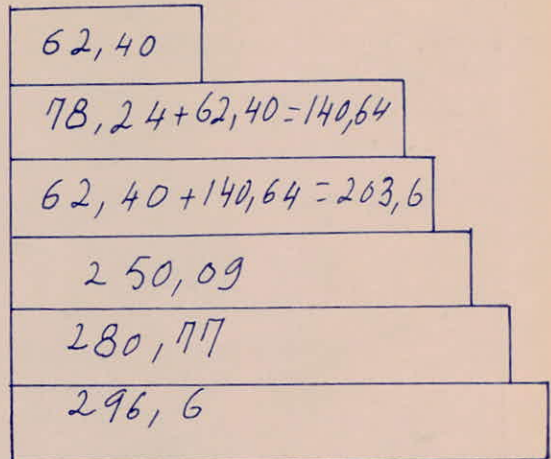 62,40
78,24+62,40=140,64
62,40+140,64=203,6
250,09
280,77
296,6